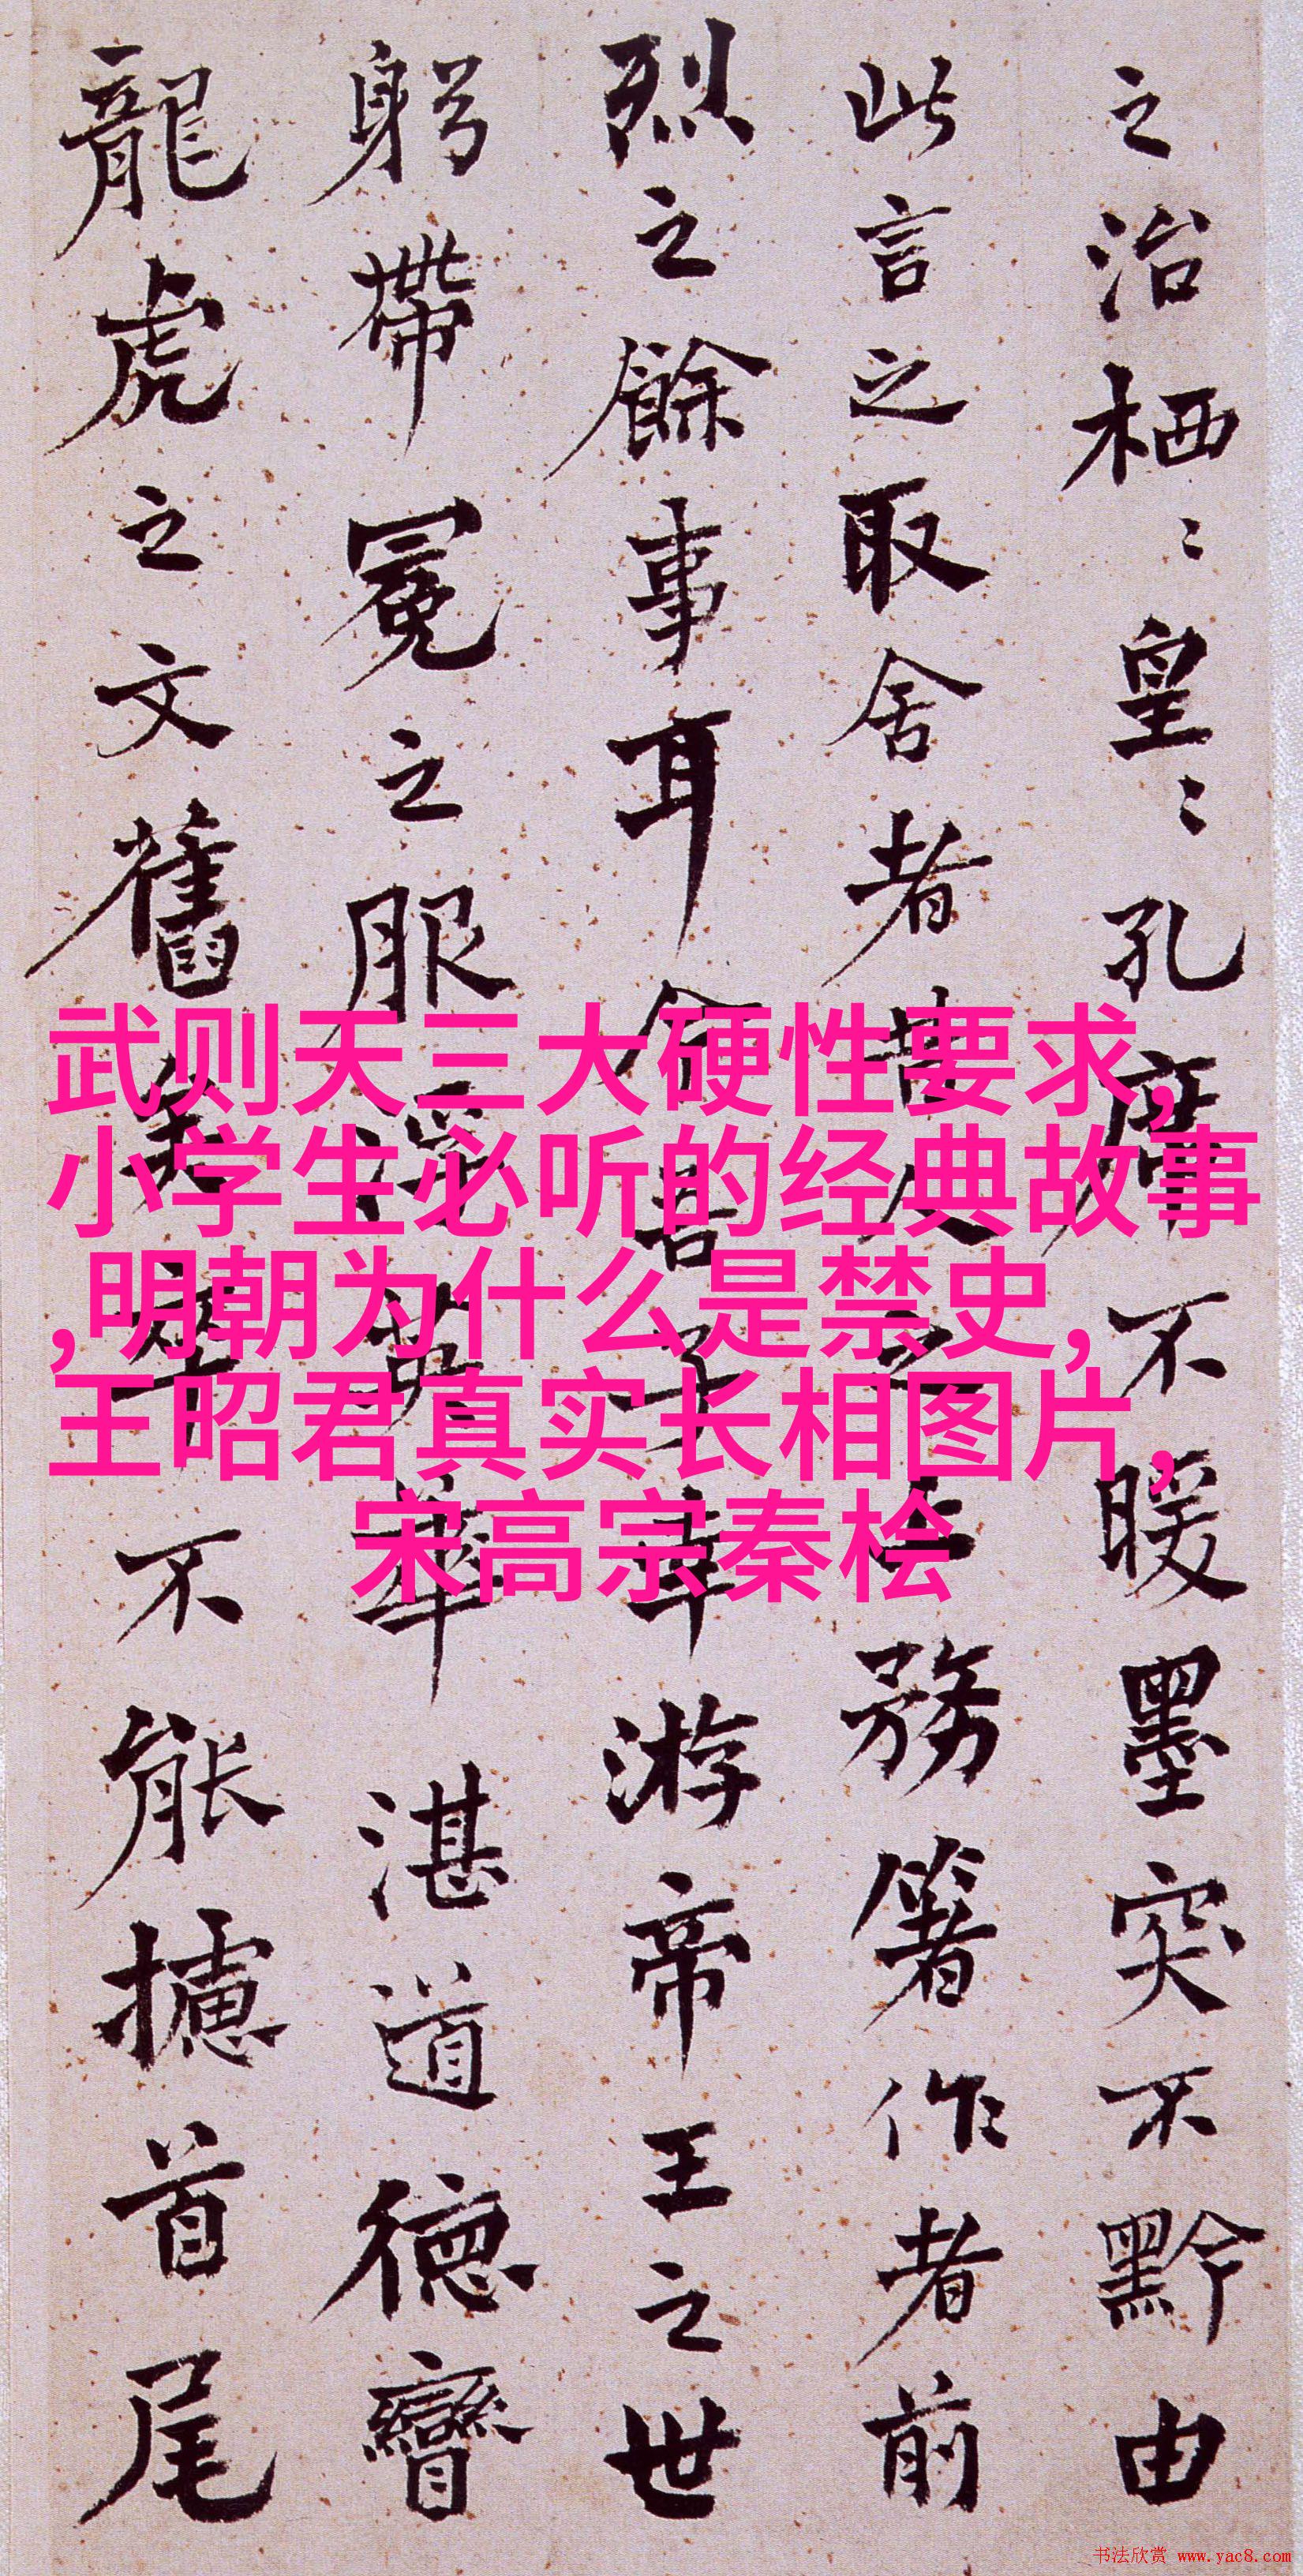 之治栖〻皇〻孔席不暖墨突不黔由
此言之取舍者昔人之上務箸作者前
烈之餘事耳今吾子幸游帝王之世
躬帶冕之服浮英華湛道德矕
龍虎之文舊矣卒不能攄首尾
武则天三大硬性要求,
小学生必听的经典故事
,明朝为什么是禁史,
王昭君真实长相图片,
宋高宗秦桧
书法欣赏 www.yac8.com